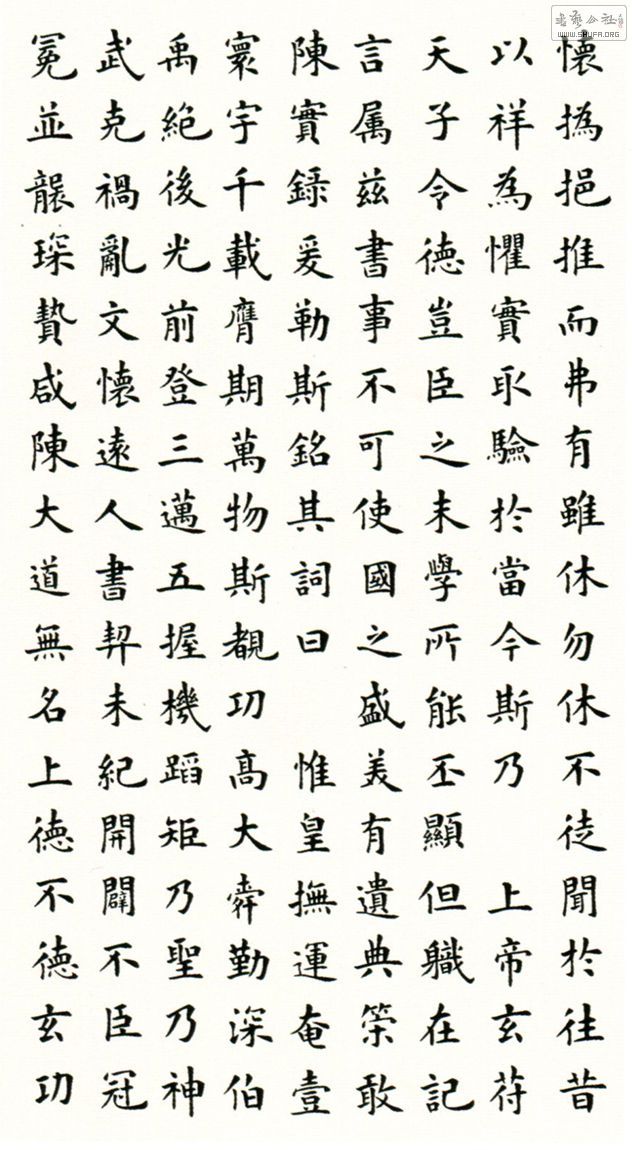 懷撝挹推而弗有雖休勿休不徒聞於往昔
以祥為懼實取驗於當今斯乃 上帝玄符
天子令德豈臣之末學所能丕顯但職在記
言属兹書事不可使國之盛美有遺典策敢
陳實錄爰勒斯銘其詞曰 惟皇撫運奄壹
寰宇千載膺期萬物斯覩功高大舜勤深伯
禹絕後光前登三邁五握機蹈矩乃聖乃神
武克禍亂文懷遠人書契未紀開闢不臣冠
冕並襲琛贄咸陳大道無名上德不德玄功
書藝公社
www.SHUFA.ORG